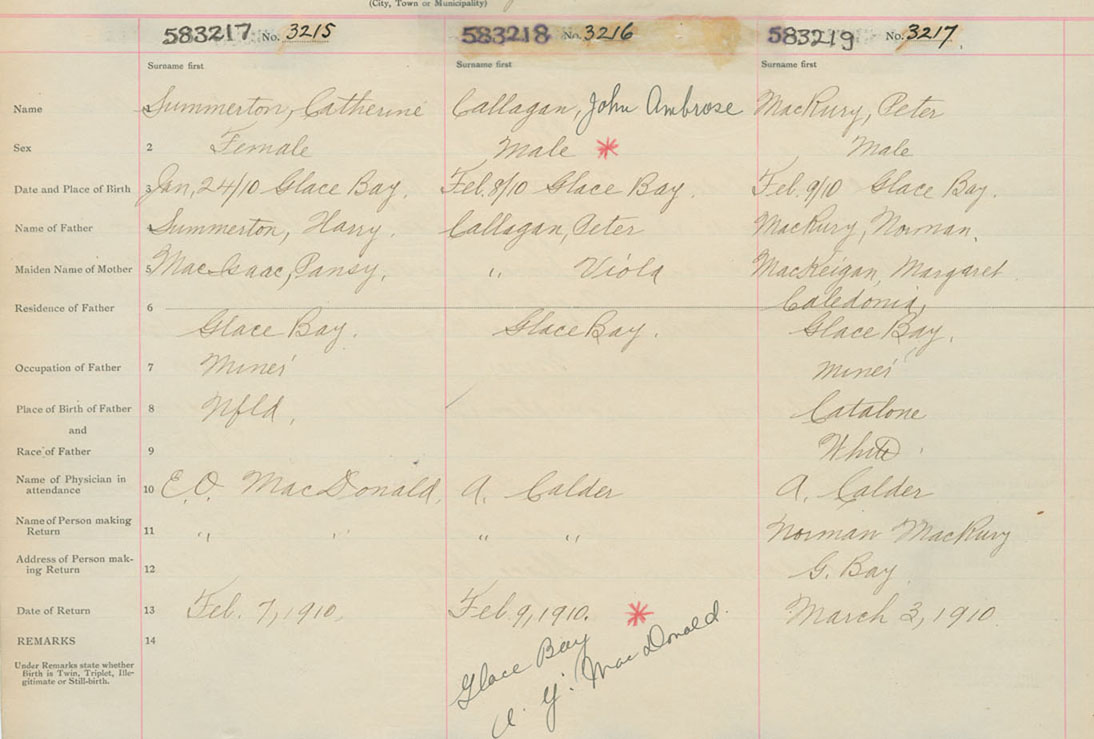 (City, Town or Municipality)
583217 No. 3215 583218 No. 3216 583219 No. 3217
Surname first Surname first Surname first
Name 1 Summerton, Catherine Callagan, John Ambrose MacRury, Peter
Sex 2 Female Male * Male
Date and Place of Birth 3 Jan, 24/10 Glace Bay. Feb. 8/10 Glace Bay. Feb. 9/10 Glace Bay.
Name of Father 4 Summerton, Harry. Callagan, Peter MacRury, Norman.
Maiden Name of Mother 5 MacIsaac, Pansy. " Viola MacKeigan, Margaret
Residence of Father 6 Caledonia,
Glace Bay. Glace Bay. Glace Bay.
Occupation of Father 7 Miner Miner
Place of Birth of Father 8 Nfld, Catalone
and
Race of Father 9 White
Name of Physician in
attendance 10 E.O. MacDonald, A. Calder A. Calder
Name of Person making
Return 11 " " " " Norman MacRury
Address of Person mak-
ing Return 12 G. Bay
Date of Return 13 Feb. 7, 1910. Feb. 9, 1910. * March 3, 1910
REMARKS 14
Under Remarks state whether
Birth is Twin, Triplet, Ille-
gitimate or Still-birth.
Glace Bay
MacDonald